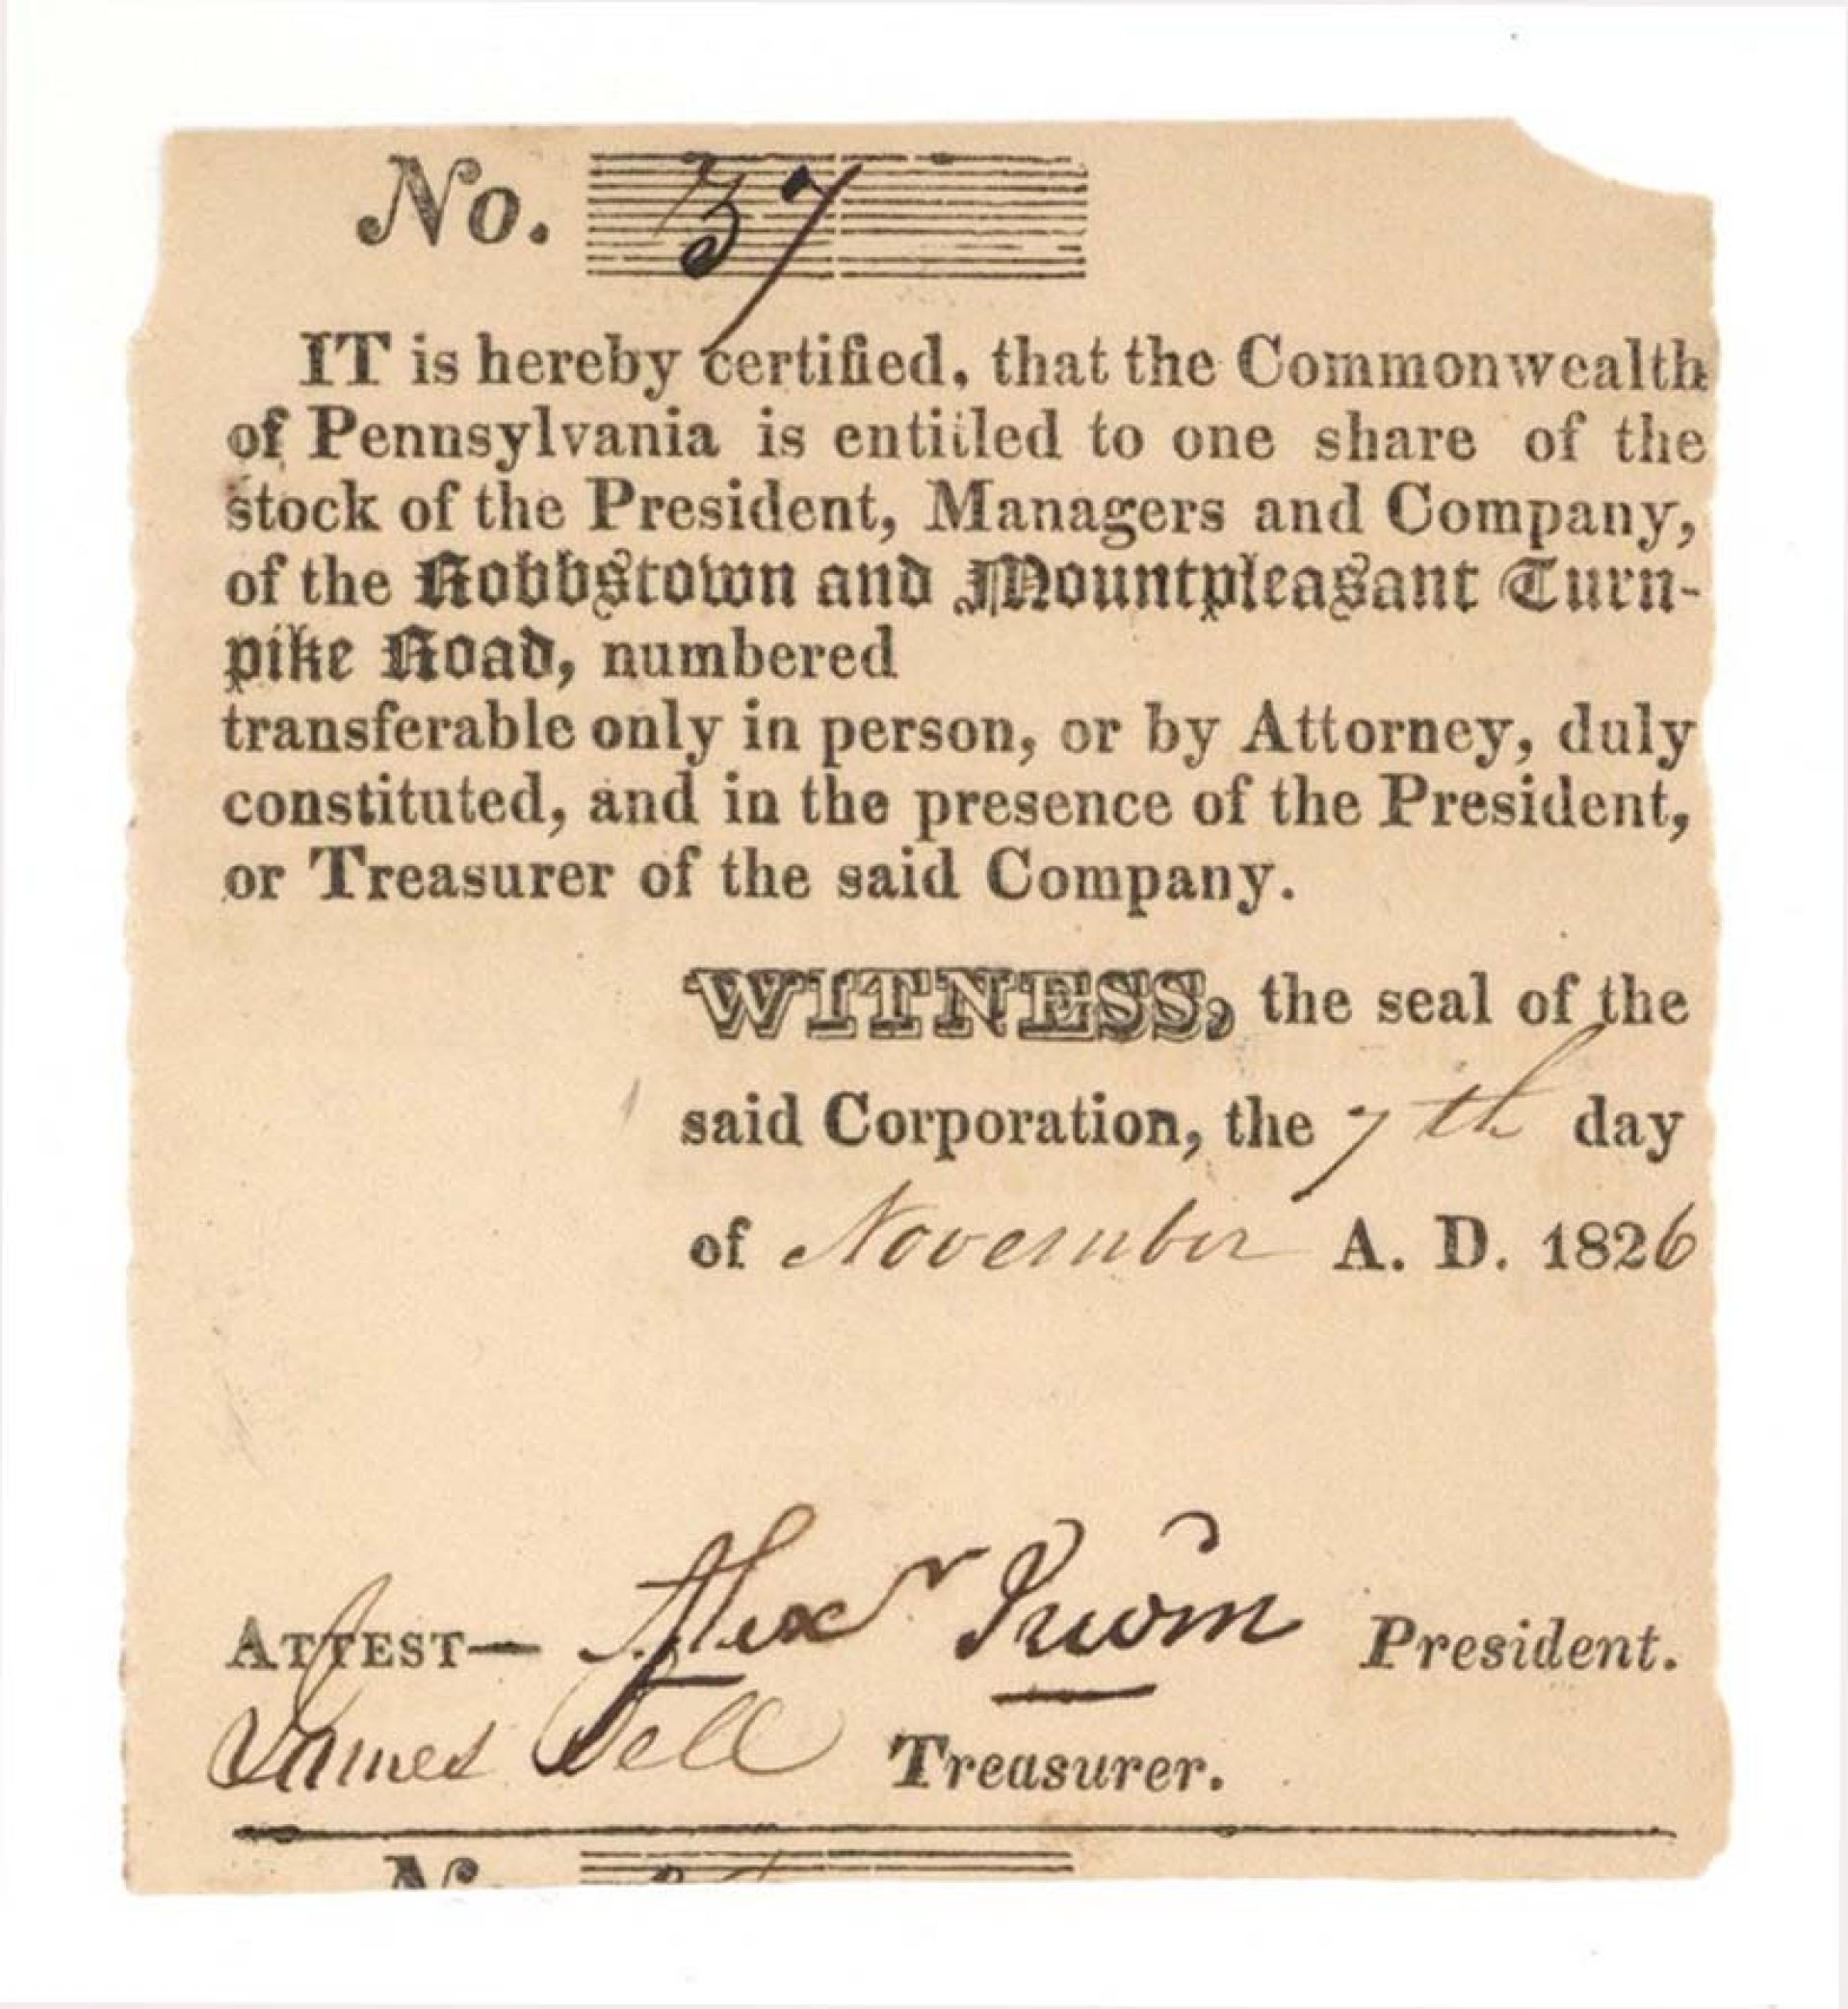 No. 37
IT is hereby certified, that the Commonwealth
of Pennsylvania is entitled to one share of the
stock of the President, Managers and Company,
of the Robbstown and Mountpleasant Turn-
pike Road, numbered
transferable only in person, or by Attorney, duly
constituted, and in the presence of the President,
or Treasurer of the said Company.
WITNESS, the seal of the
said Corporation, the 7th day
of November A. D. 1826
ATTEST— Alexr Irwin President.
James Bell Treasurer.